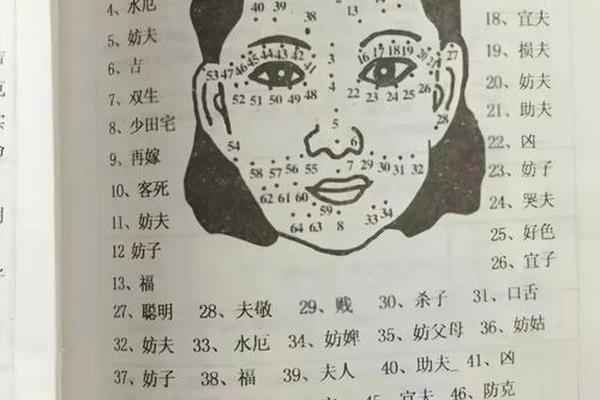 4、水厄
5、妨夫
6、吉
7、双生
8、少田宅
9、再嫁
10、客死
11、妨夫
12 妨子
13、福
40 39 38 13
45 44 43 42 41
53 47 46
52 51 50 49 48
16 17 18 19 20 21 27
22 23 24 25 26
28
3
4
5
6
54
58 57 56 55 7 29 30 31 32
62 61 60
59
64 63 8 33 34
18、宜夫
19、损夫
20、妨夫
21、助夫
22、凶
23、妨子
24、哭夫
25、好色
26、宜子
27、聪明 28、夫敬 29、贱 30、杀子 31、口舌
32、妨夫 33、水厄 34、妨婢 35、妨父母 36、妨姑
37、妨子 38、福 39、夫人 40、助夫 41、凶
45、宜夫 46、防克